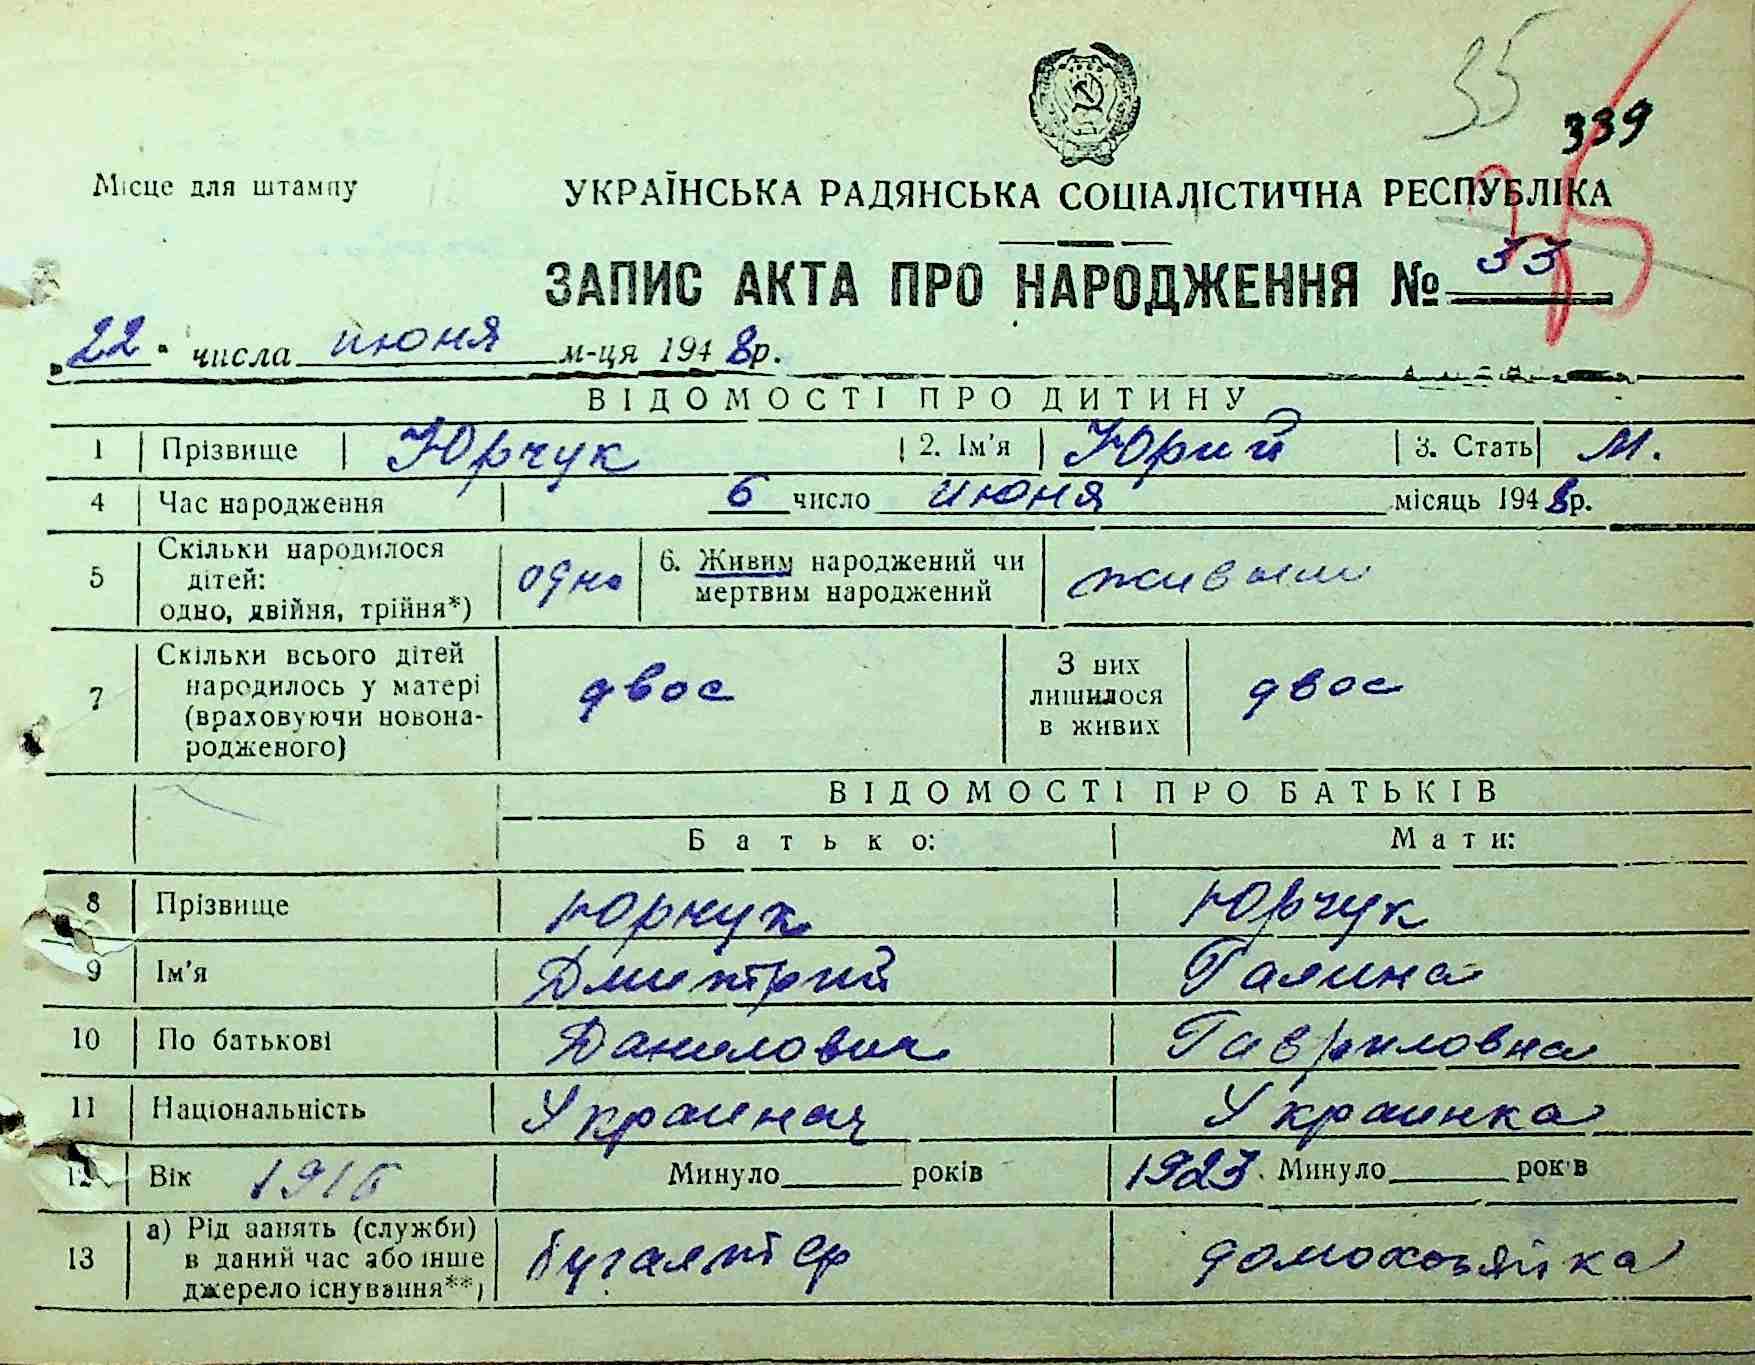 35
339
Місце для штампу
УКРАЇНСЬКА РАДЯНСЬКА СОЦІАЛІСТИЧНА РЕСПУБЛІКА
35
ЗАПИС АКТА ПРО НАРОДЖЕННЯ № 33
„22" числа июня м-ця 1948р.
ВІДОМОСТІ ПРО ДИТИНУ
1 Прізвище Юрчук 2. Ім'я Юрий 3. Стать М.
4 Час народження 6 число июня місяць 1948р.
5 Скільки народилося дітей: одно, двійня, трійня*) одно 6. Живим народжений чи мертвим народжений живым
7 Скільки всього дітей народилось у матері (враховуючи новонародженого) двое З них лишилося в живих двое
ВІДОМОСТІ ПРО БАТЬКІВ
Батько: Мати:
8 Прізвище Юрчук Юрчук
9 Ім'я Дмитрий Галина
10 По батькові Данилович Гавриловна
11 Національність Украинец Украинка
12 Вік 1916 Минуло ______ років 1923. Минуло ______ років
13 а) Рід занять (служби) в даний час або інше джерело існування**) бугалтер домохозяйка